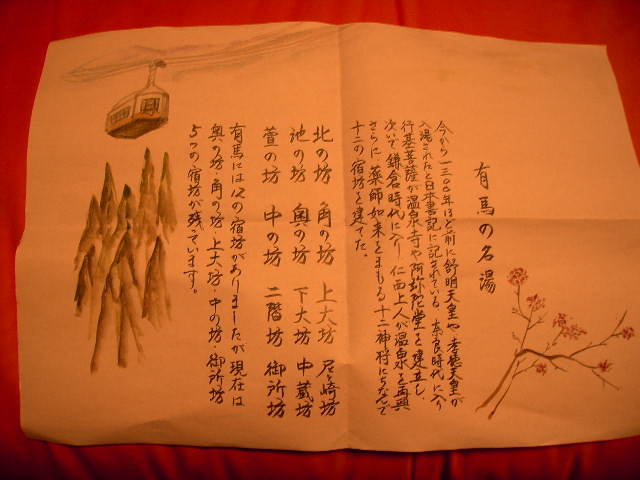 有馬の名湯
今から一三〇〇年ほど前に舒明天皇や孝徳天皇が
入湯されたと日本書記に記されている。奈良時代に入り
行基菩薩が温泉寺や阿弥陀堂を建立し、
次いで鎌倉時代に入り仁西上人が温泉を再興
さらに薬師如来をまもる十二神将にちなんで
十二の宿坊を建てた。
北の坊 角の坊 上大坊 尼ヶ崎坊
池の坊 奥の坊 下大坊 中蔵坊
萱の坊 中の坊 二階坊 御所坊
有馬には12の宿坊がありましたが現在は
奥の坊・角の坊・上大坊・中の坊・御所坊
5つの宿坊が残っています。